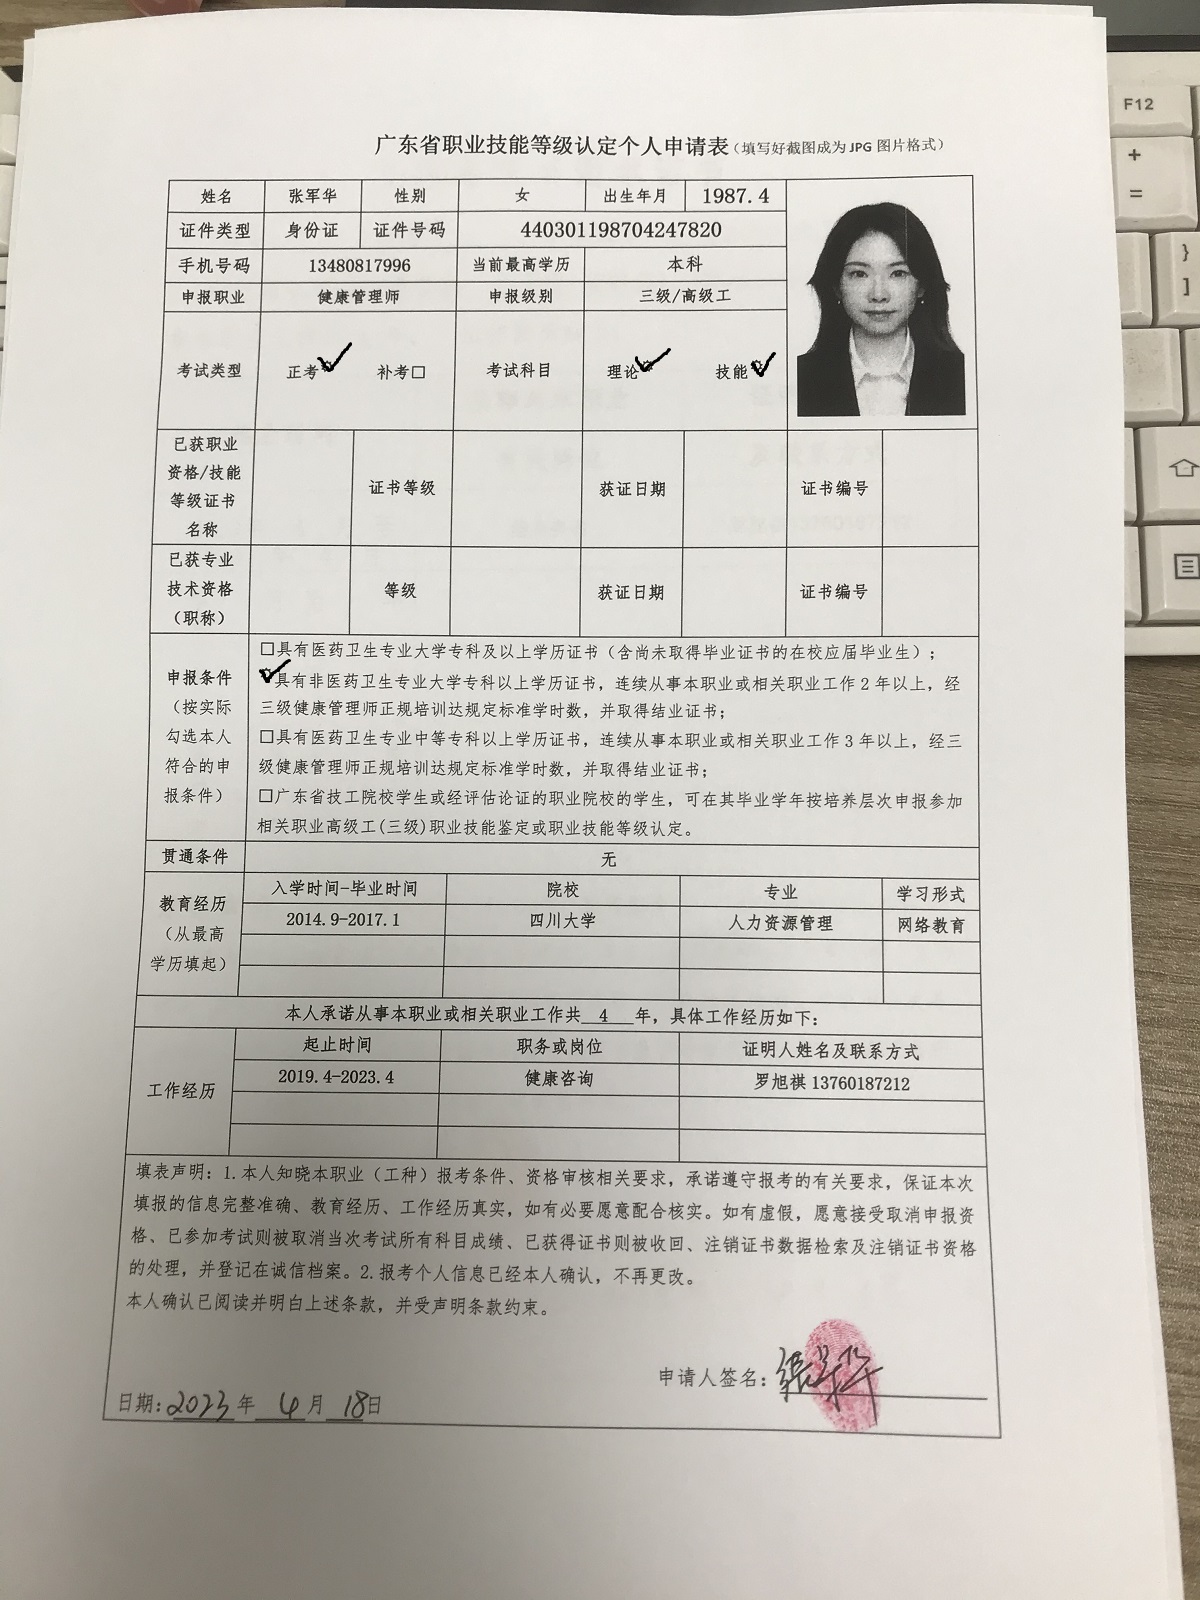 广东省职业技能等级认定个人申请表（填写好截图成为JPG图片格式）
姓名 张军华 性别 女 出生年月 1987.4
证件类型 身份证 证件号码 440301198704247820
手机号码 13480817996 当前最高学历 本科
申报职业 健康管理师 申报级别 三级/高级工
考试类型 正考✓ 补考□ 考试科目 理论✓ 技能✓
已获职业
资格/技能
等级证书
名称
证书等级 获证日期 证书编号
已获专业
技术资格
（职称）
等级 获证日期 证书编号
申报条件
（按实际
勾选本人
符合的申
报条件）
□具有医药卫生专业大学专科及以上学历证书（含尚未取得毕业证书的在校应届毕业生）；
✓具有非医药卫生专业大学专科以上学历证书，连续从事本职业或相关职业工作2年以上，经
三级健康管理师正规培训达规定标准学时数，并取得结业证书；
□具有医药卫生专业中等专科以上学历证书，连续从事本职业或相关职业工作3年以上，经三
级健康管理师正规培训达规定标准学时数，并取得结业证书；
□广东省技工院校学生或经评估论证的职业院校的学生，可在其毕业学年按培养层次申报参加
相关职业高级工(三级)职业技能鉴定或职业技能等级认定。
贯通条件 无
教育经历
（从最高
学历填起）
入学时间-毕业时间 院校 专业 学习形式
2014.9-2017.1 四川大学 人力资源管理 网络教育
本人承诺从事本职业或相关职业工作共 4 年，具体工作经历如下：
工作经历
起止时间 职务或岗位 证明人姓名及联系方式
2019.4-2023.4 健康咨询 罗旭祺 13760187212
填表声明：1.本人知晓本职业（工种）报考条件、资格审核相关要求，承诺遵守报考的有关要求，保证本次
填报的信息完整准确、教育经历、工作经历真实，如有必要愿意配合核实。如有虚假，愿意接受取消申报资
格、已参加考试则被取消当次考试所有科目成绩、已获得证书则被收回、注销证书数据检索及注销证书资格
的处理，并登记在诚信档案。2.报考个人信息已经本人确认，不再更改。
本人确认已阅读并明白上述条款，并受声明条款约束。
申请人签名：张军华
日期：2023年 4月 18日
F12
+
=
}
]